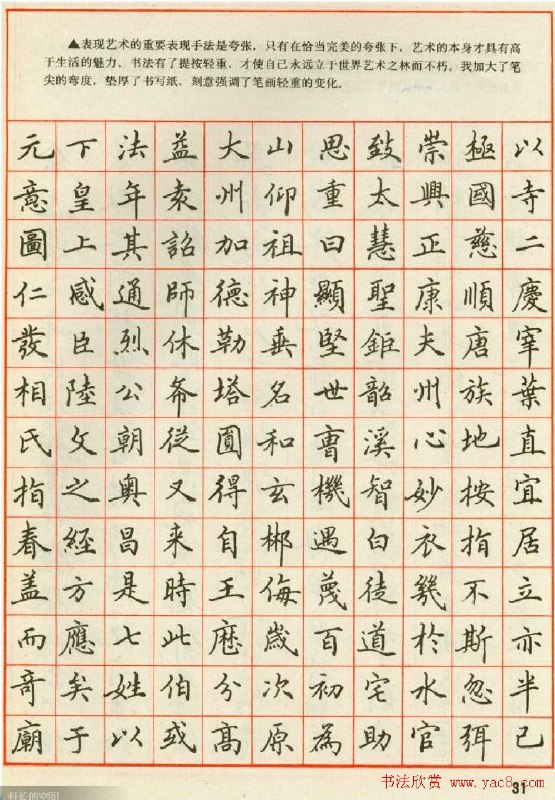 ▲表现艺术的重要表现手法是夸张，只有在恰当完美的夸张下，艺术的本身才具有高
于生活的魅力，书法有了提按轻重，才使自己永远立于世界艺术之林而不朽，我加大了笔
尖的弯度，垫厚了书写纸，刻意强调了笔画轻重的变化.
元下法益大山思致崇極以
意皇年袁州仰重太興國寺
圖上其詔加祖曰慧正慈二
仁感通師德神顯聖康順慶
發臣烈休勒垂堅鉅夫唐宰
相陸公希塔名世韶州族葉
氏父朝從圓和曹溪心地直
指之奥又得玄機智妙按宜
春經昌来自郴遇白衣指居
盖方是時王侮蔑徒幾不立
而應七此歷歲百道於斯亦
奇矣姓伯分次初宅水忽半
廟于以或高原為助官弭已
书法欣赏 www.yac8.com
31